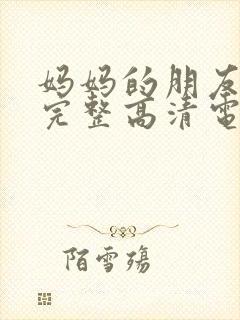 妈妈的朋友
完整高清电
陌雪殇